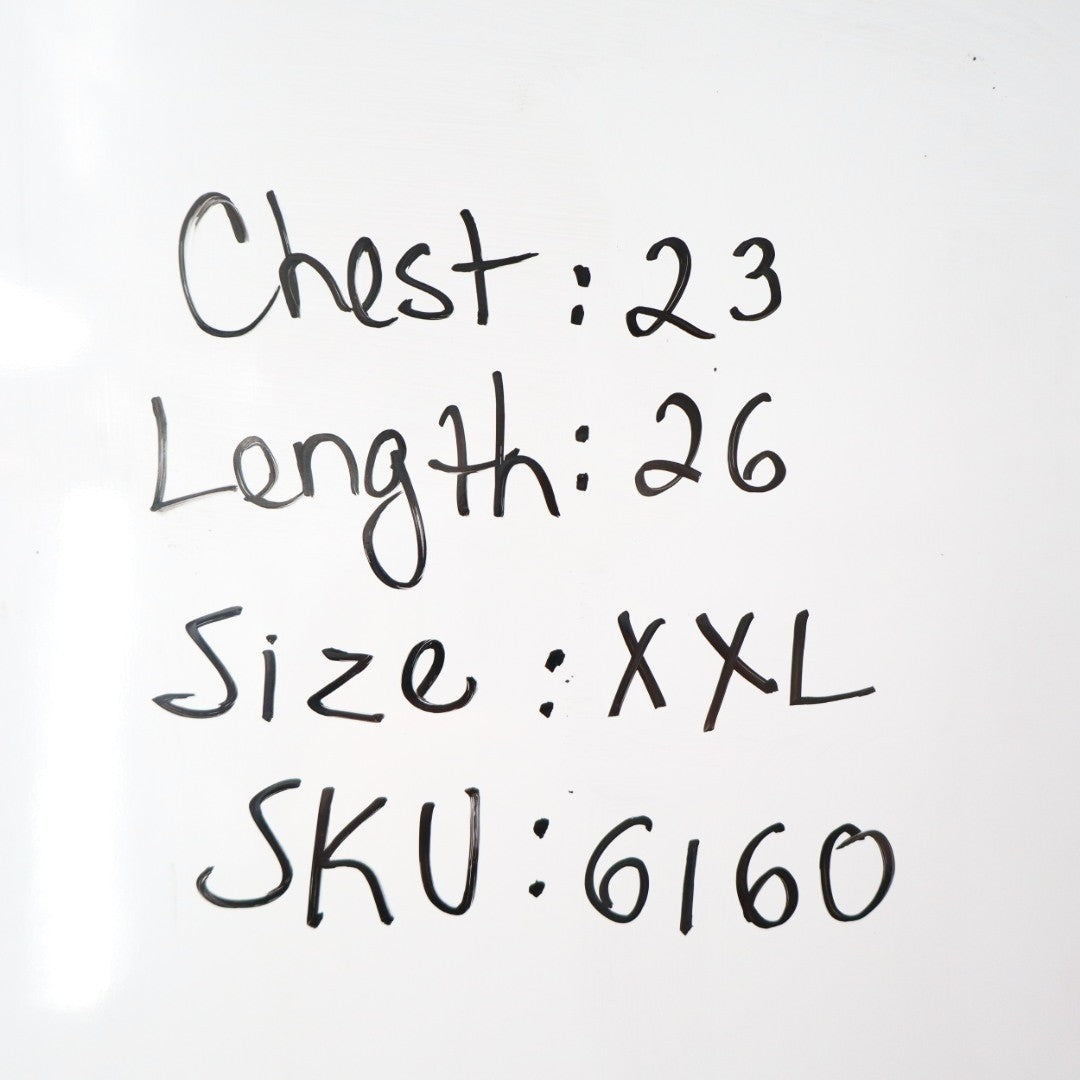 Chest: 23
Length: 26
Size: XXL
SKU: 6160